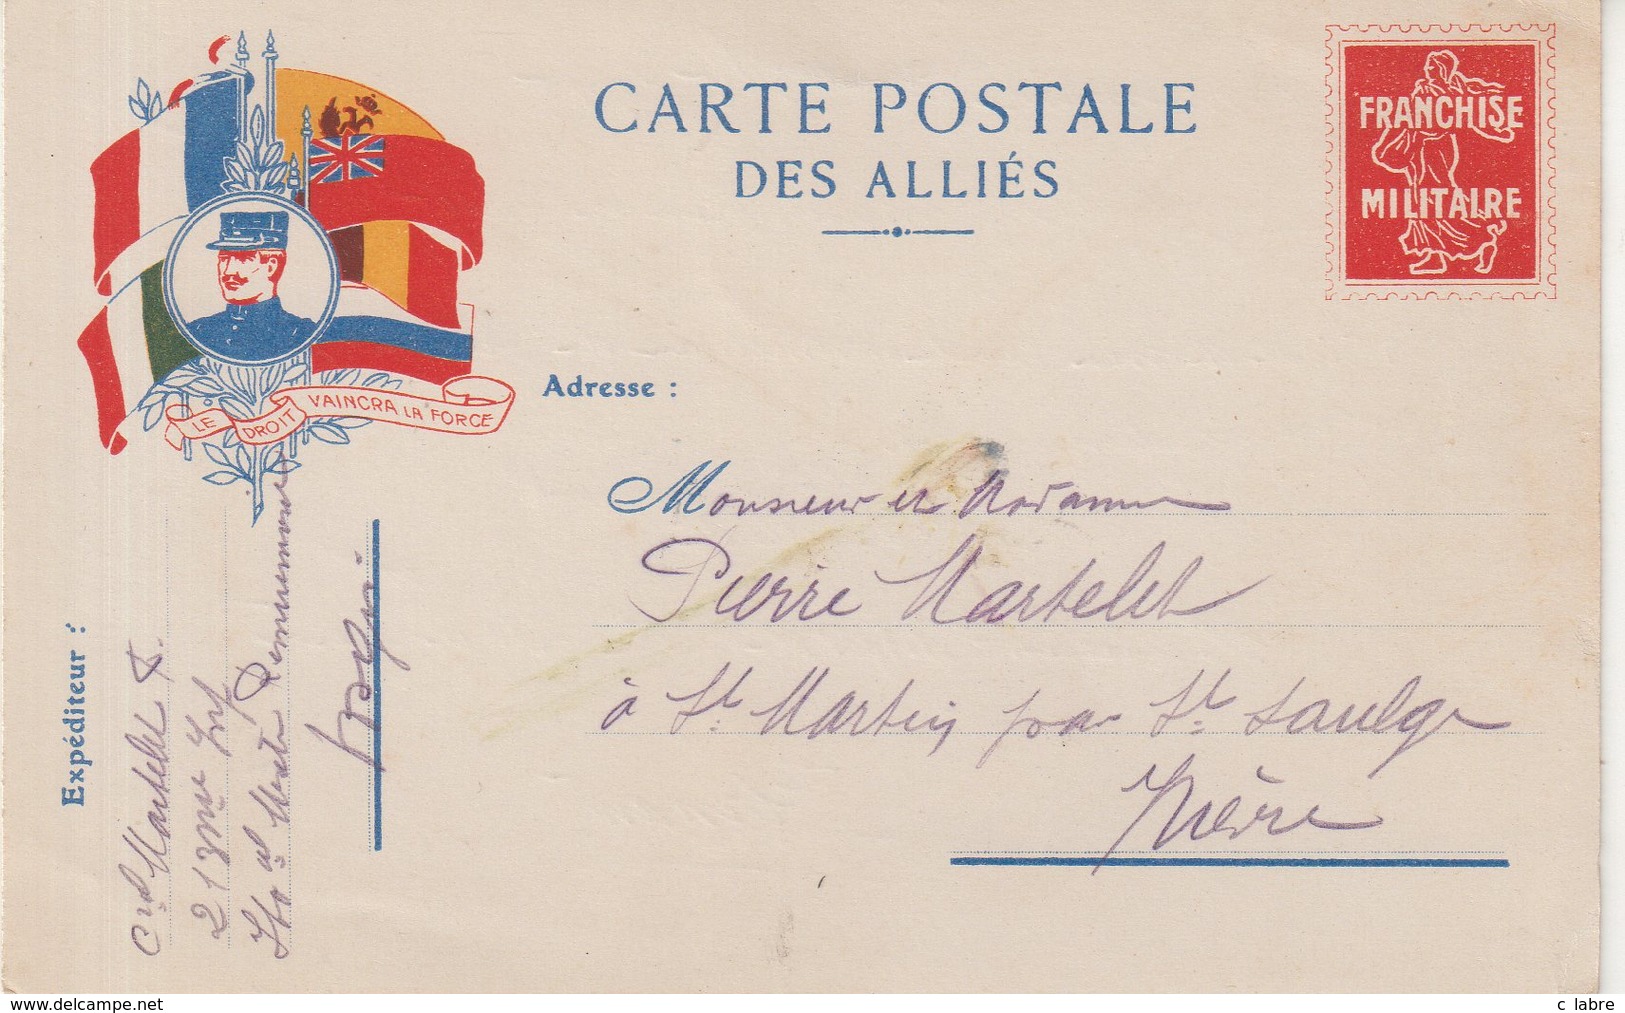 CARTE POSTALE
DES ALLIÉS
FRANCHISE
MILITAIRE
LE DROIT VAINCRA LA FORCE
Adresse :
Monsieur et Madame
Pierre Martelet
à St Martin par St Saulge
Nièvre
Expéditeur :
Martelet F.
213me Inf
www.delcampe.net
c labre